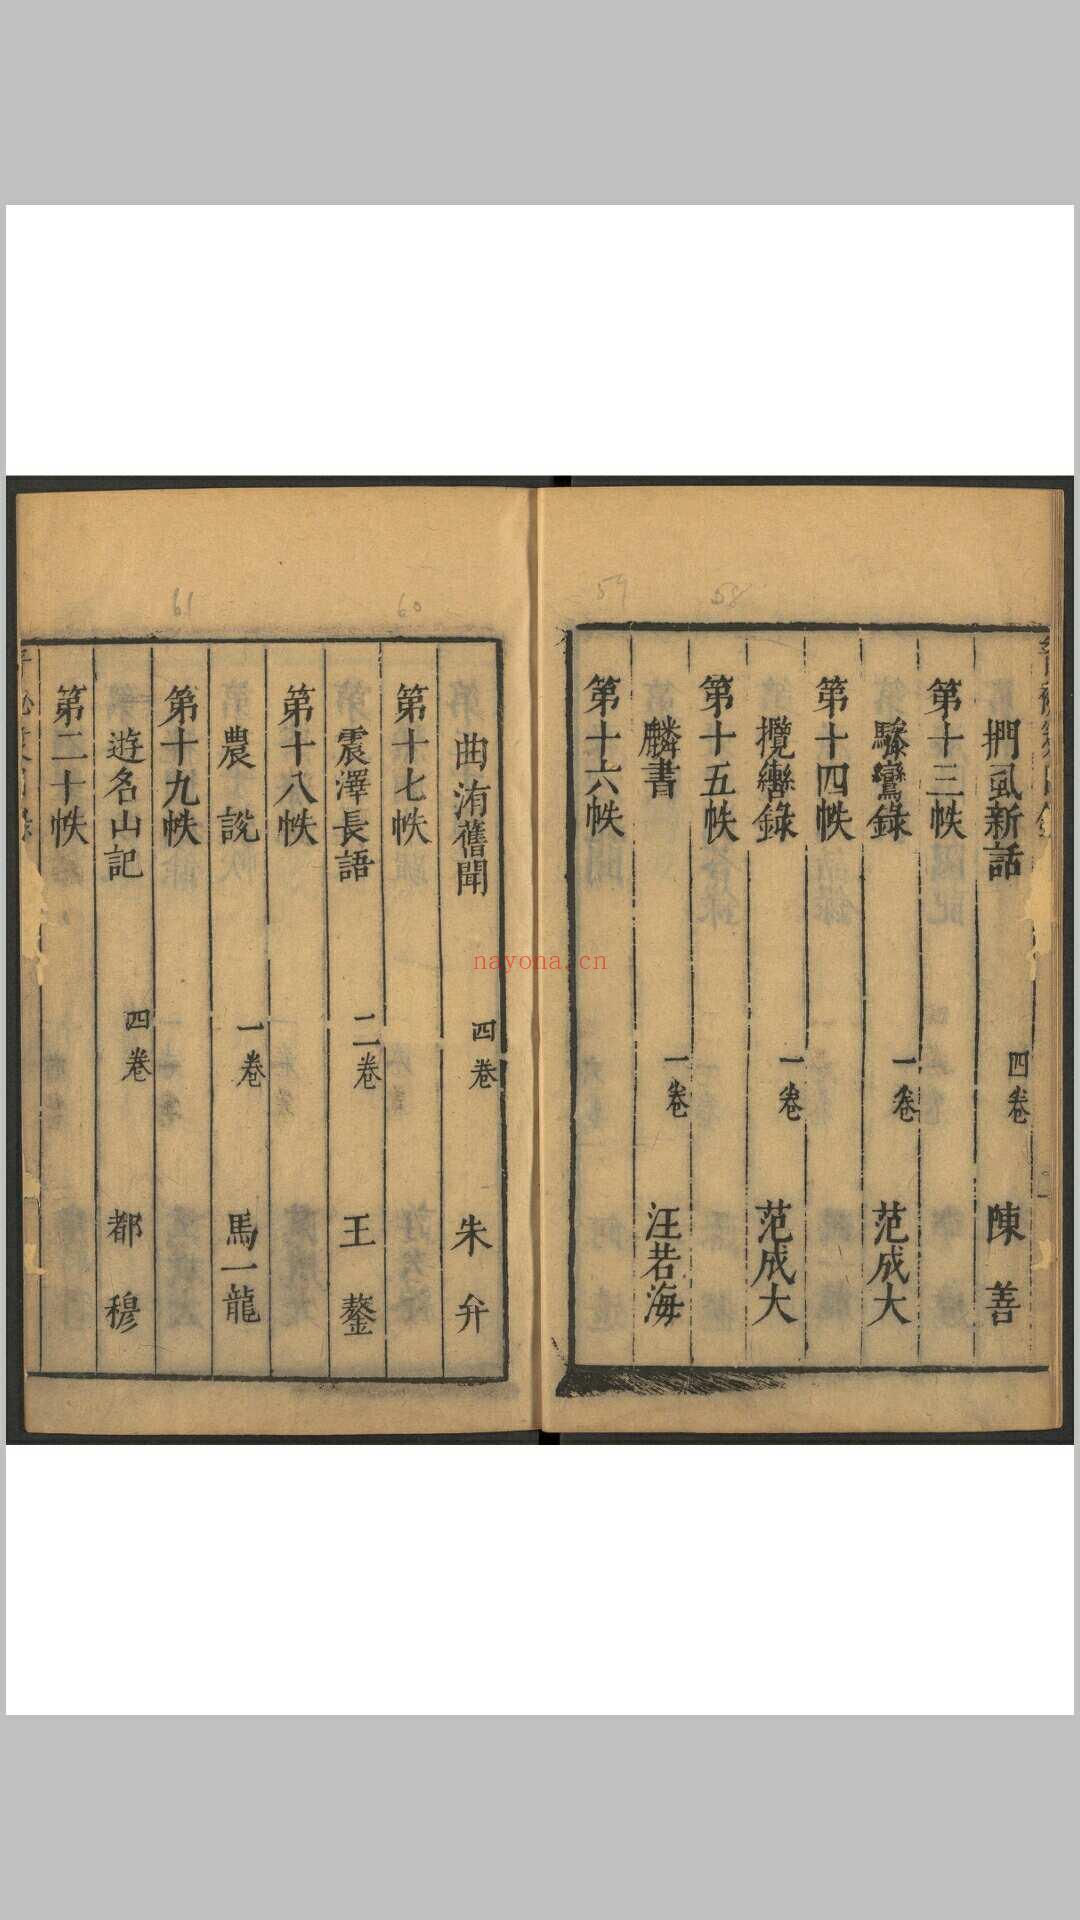 捫虱新話 四卷 陳善
第十三帙
驂鸞錄 一卷 范成大
第十四帙
攬轡錄 一卷 范成大
第十五帙
麟書 一卷 汪若海
第十六帙
曲洧舊聞 四卷 朱弁
第十七帙
震澤長語 二卷 王鏊
第十八帙
農說 一卷 馬一龍
第十九帙
遊名山記 四卷 都穆
第二十帙
58
59
60
61
nayona.cn